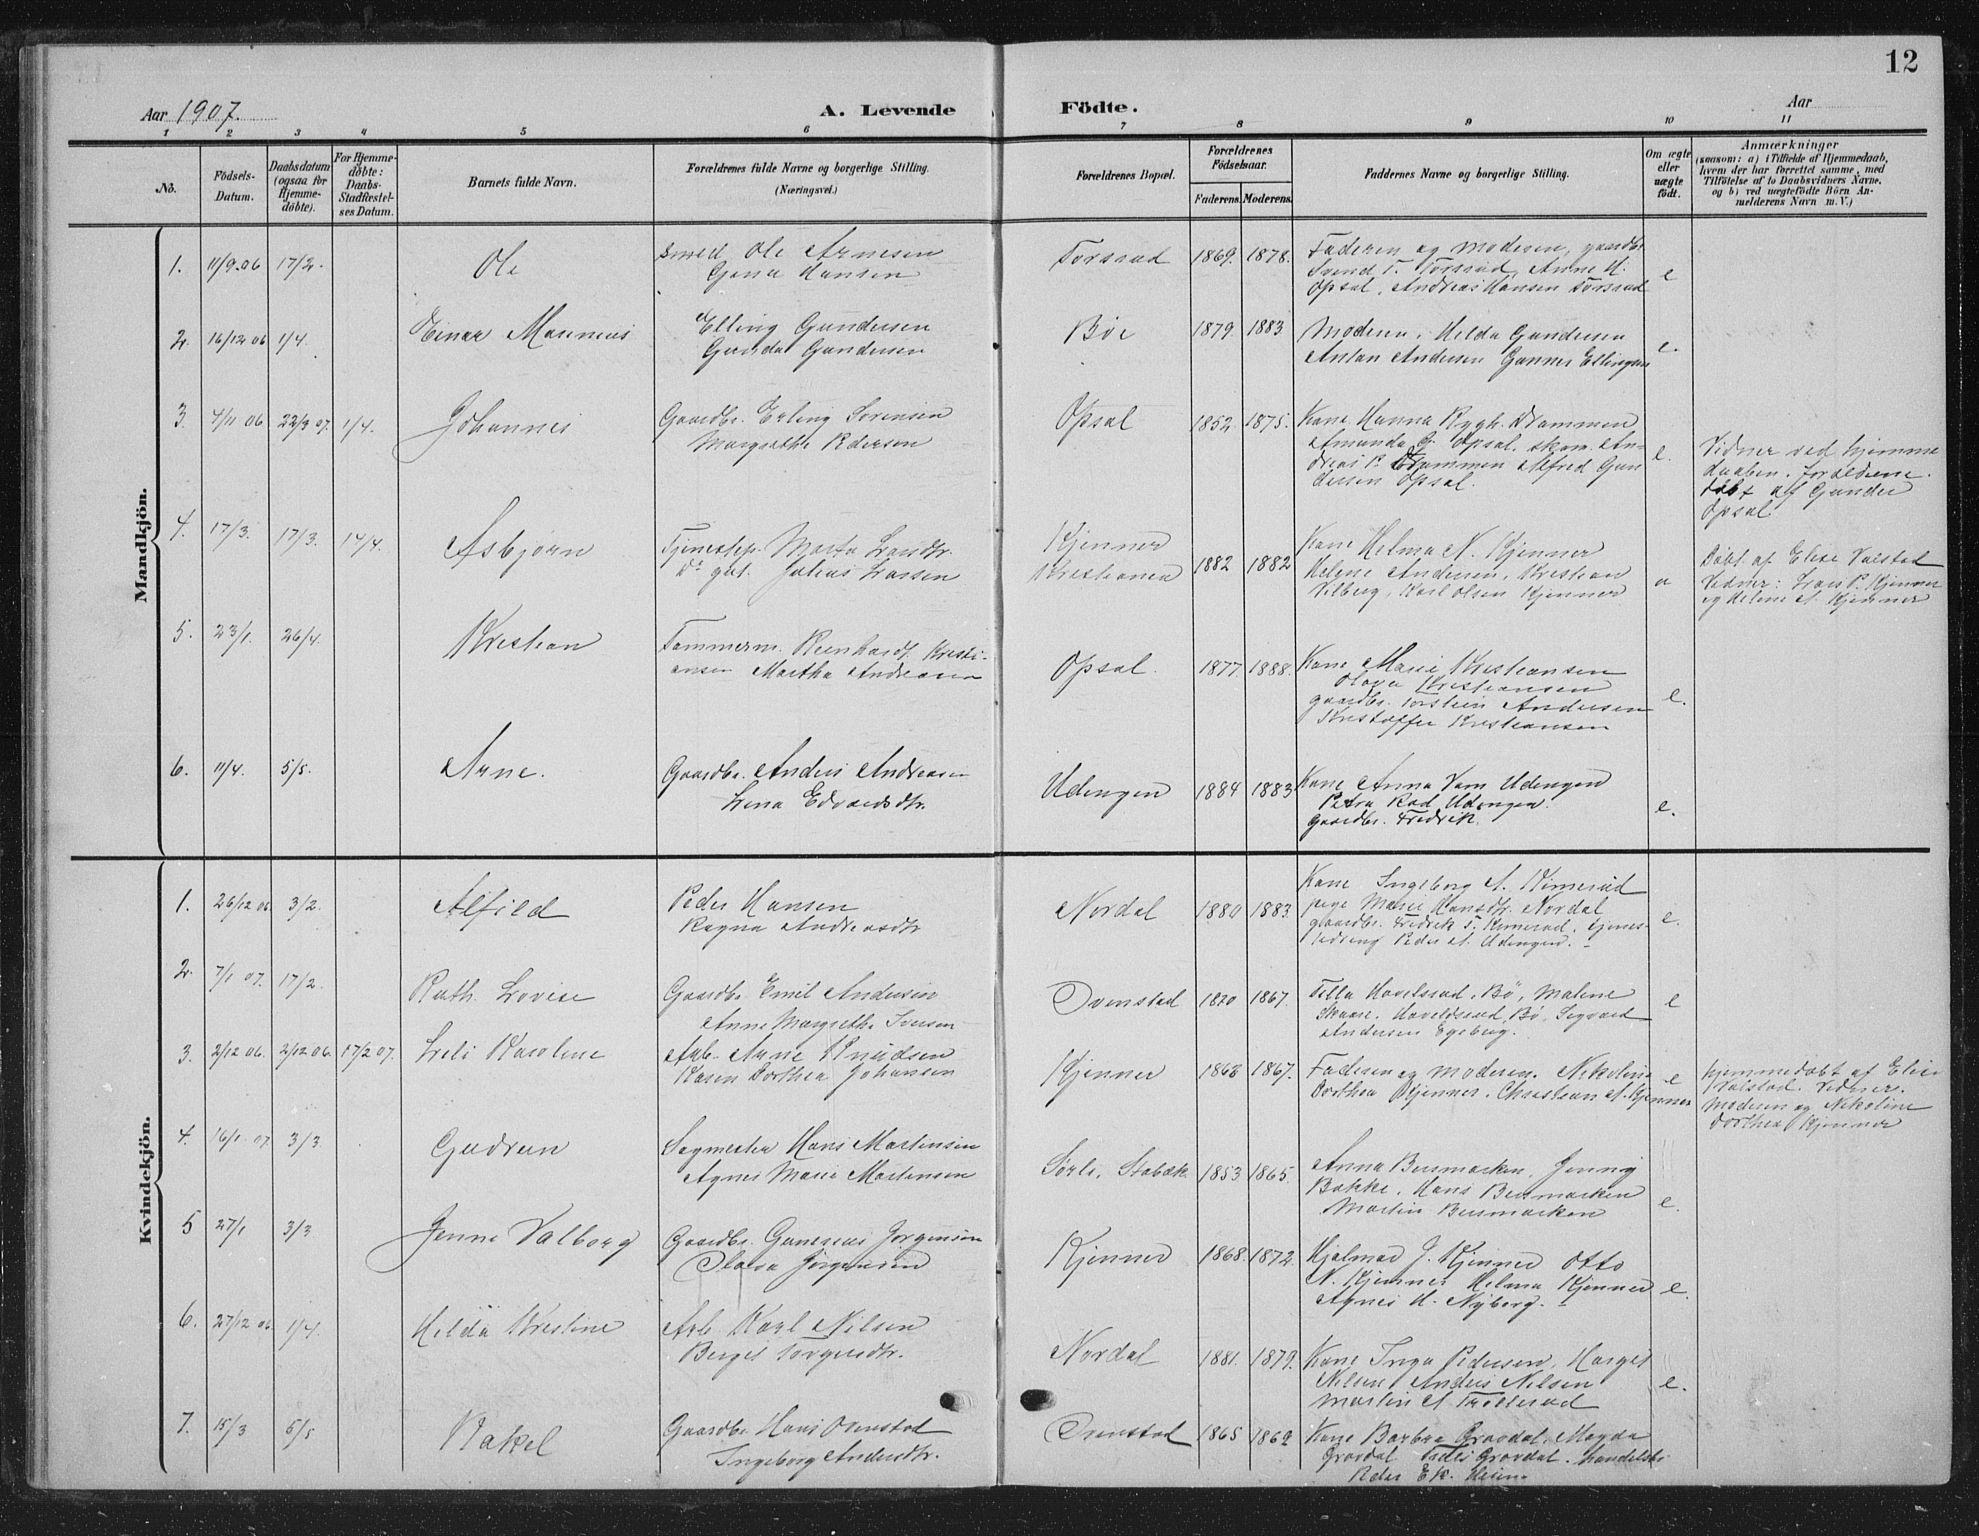 12
Aar 1907.
A. Levende
Födte.
Aar
1 2 3 4 5 6 7 8 9 10 11
No.
Födsels-
Datum.
Daabsdatum
(ogsaa for
Hjemme-
döbte).
For Hjemme-
döbte:
Daabs-
Stadfæstel-
ses Datum.
Barnets fulde Navn.
Forældrenes fulde Navne og borgerlige Stilling.
(Næringsvei.)
Forældrenes Bopæl.
Forældrenes
Födselsaar.
Faderens. Moderens.
Faddernes Navne og borgerlige Stilling.
Om ægte
eller
uægte
födt.
Anmærkninger
(saasom: a) i Tilfælde af Hjemmedaab,
hvem der har forrettet samme, med
Tilföielse af to Daabsvidners Navne,
og b) ved uægtefödte Börn An-
melderens Navn m. V.)
Mandkjön.
1. 11/9.06 17/2. Ole
Smed Ole Arnesen
Gina Hansen
Torsrud 1869. 1878.
Faderen og Moderen, gaardbr.
Svend T. Torsrud, Anne H.
Opsal, Andreas Hansen Torsrud
e
2. 16/12 06 1/4. Einar Marinius
Elling Gundersen
Gunda Gundersen
Böe 1879 1883
Moderen, Hilda Gundersen
Anton Andersen Gunner Ellingsen
e.
3. 4/11 06. 22/3 07. 1/4. Johannes
Gaardbr. Erling Sorensen
Margrethe Pedersen
Opsal 1852 1875.
Kone Hanna Rygh. Drammen
Amanda G. Opsal, skom. An-
dreas P. Drammen Alfred Gun
dersen Opsal.
e.
Vidner ved hjemme
daaben. Forældrene.
döbt af Gunder
Opsal
4. 17/3. 17/3. 14/4. Asbjörn
Tjenestep. Marta Larsdtr.
Do gut. Julius Larsen
Kjenner
Kristiania 1882 1882
Kone Helma N. Kjenner
Helene Andersen, Kristian
Vilberg, Karl Olsen Kjenner
u
Döbt af Elise Valstad
Vidner: Lars P. Kjenner
og Helene A. Kjenner
5. 23/1. 26/4. Kristian
Tømmerm. Reinhardt Kristi-
ansen Martha Andresen
Opsal. 1877. 1888.
Kone Marie Kristiansen
Olava Kristiansen
gaardbr. Torstein Andersen
Kristoffer Kristiansen
e.
6. 11/4. 5/5. Arne.
Gaardbr. Anders Andresen
Lina Edvardsdtr.
Udengen 1884 1883
Kone Anna Vam Udengen
Petra Rød Udengen.
Gaardbr. Fredrik.
e.
Kvindekjön.
1. 26/12 06 3/2. Alfild
Peder Hansen
Ragna Andreasdtr
Nordal 1880 1883.
Kone Ingeborg A. Kimerud
pige Marie Hansdtr. Nordal
gaardbr. Fredrik T. Kimerud, tjenes-
tedreng Peder A. Udengen.
e.
2. 7/1 07. 17/2. Ruth Lovise
Gaardbr. Emil Andersen
Anne Margrethe Iversen
Ovenstad 1870 1867.
Tilla Hovelsrud, Bö, Malene
Skaare. Hoveldsrud, Bö Sigvard
Andersen Egeberg.
e
3. 2/12 06. 2/12 06. 17/2 07. Lrili Karoline
Arb. Arne Knudsen
Karen Dorthea Johansen
Kjenner 1868 1867.
Faderen og Moderen. Nikoline
Dorthea Kjenner. Christian A. Kjenner
e
hjemmedöbt af Elise
Valstad. Vidner.
Moderen og Nikoline
Dorthea Kjenner
4. 16/1 07 3/3. Gudrun
Sagmester Hans Martinsen
Agnes Marie Martinsen
Sörli, Stabæk 1853 1865.
Anna Busmarken, Jenny
Bakke, Hans Busmarken
Martin Busmarken
e.
5 27/1 3/3 Jenne Valborg
Gaardbr. Gunerius Jörgensen
Olava Jörgensen
Kjenner 1868. 1872.
Hjalmar J. Kjenner Otto
N. Kjenner Helma Kjenner
Agnes H. Nyberg.
e.
6. 27/12 06 1/4. Hilda Kristine
Arb. Karl Nilsen
Berget Torgersdtr.
Nordal 1881. 1879.
Kone Inga Pedersen, Marget
Nilsen, Anders Nilsen
Martin A. Trillerud
e.
7. 15/3 5/5 Rakel
Gaardbr. Hans Ovenstad
Ingeborg Andersdtr.
Ovenstad 1865 1869
Kone Barbra Gravdal, Magda
Gravdal Gravdal, handelsb.
Peder Ek.